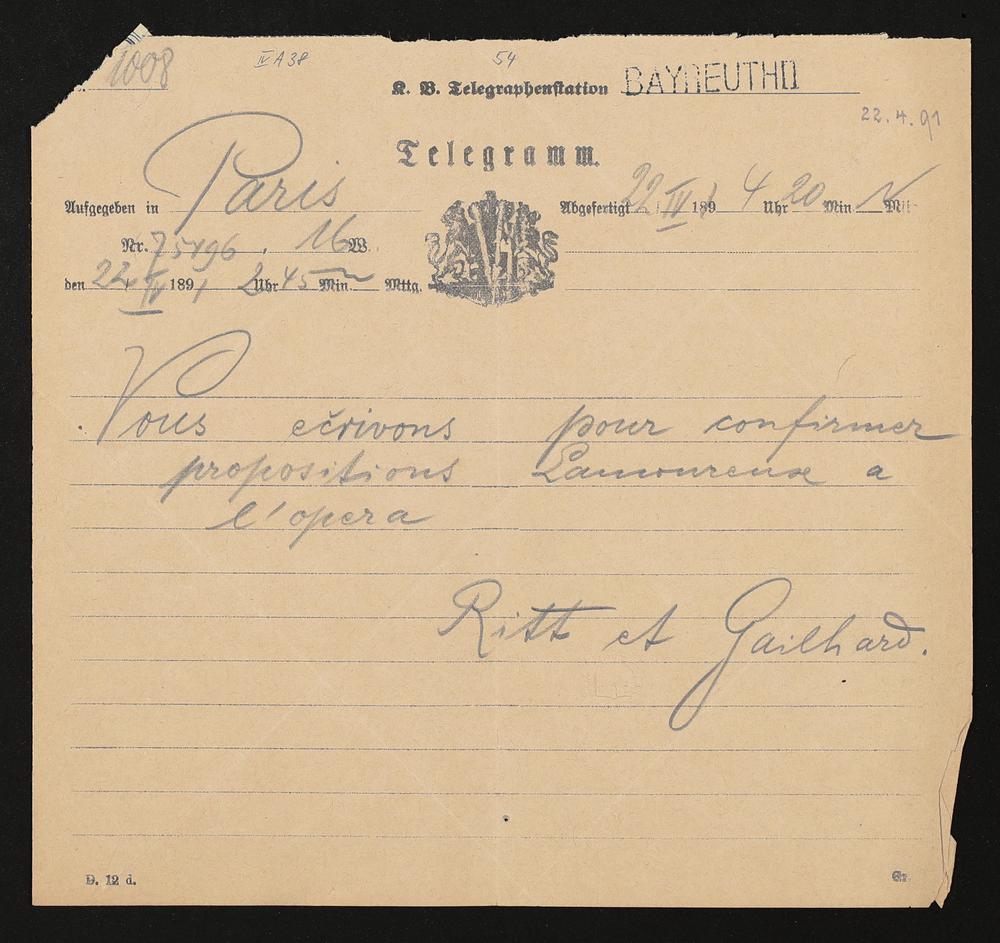 1008
IV A 38
54
K. B. Telegraphenstation BAYREUTH II
22.4.91
Telegramm.
Aufgegeben in Paris
Abgefertigt 22 IV 1891 4 Uhr 20 Min. N Mit
Nr. 75496, 16 W.
den 22 IV 1891 2 Uhr 45 Min. Mttg.
Vous ečrivons pour confirmer
propositions Lamoureuse a
l'opera
Ritt et Gailhard.
D. 12 d.